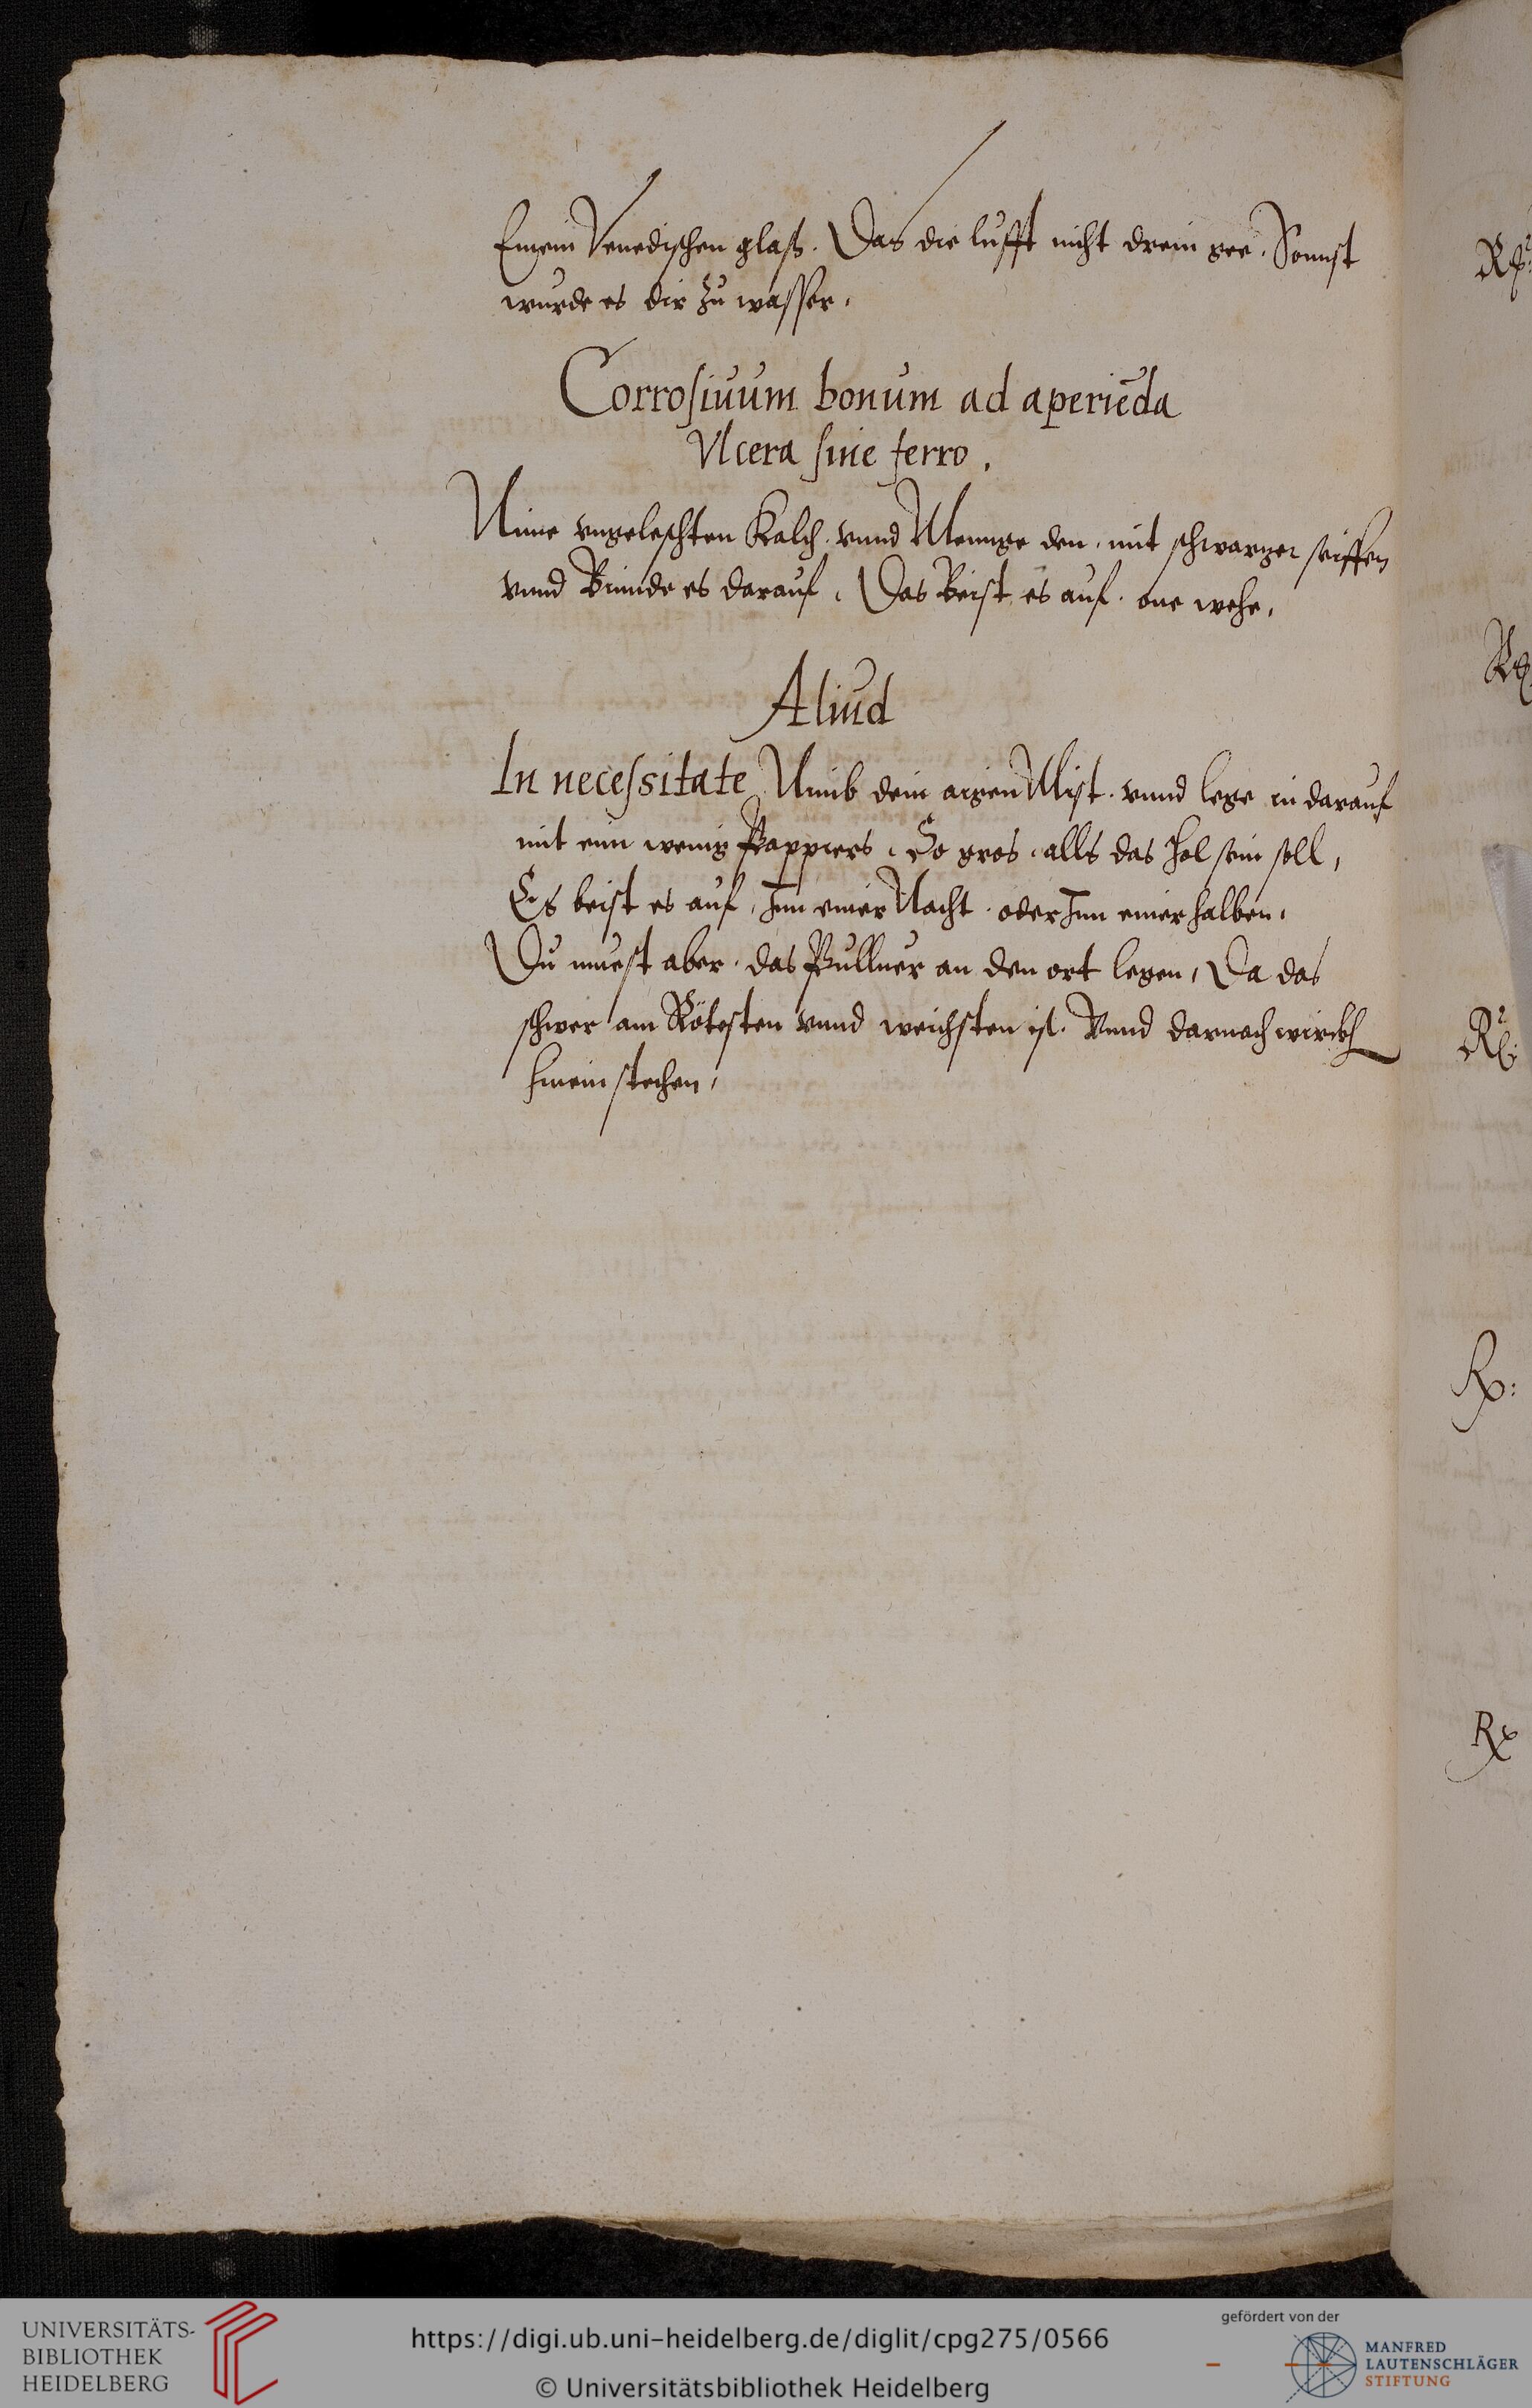 Einem Venedischen glaß. Das die lufft nicht drein gee. Sonnst
wurde es dir zu wasser,
Corrosiuum bonum ad aperiēda
Vlcera sine ferro.
Nime vngeleschten Kalch. vnnd Mennge den. mit schwarzer seiffen
vnnd Binnde es darauf. Das Beist es auf. one wehe,
Aliud
In necessitate Nimb dein aigen Mist. vnnd lege in darauf
mit eim wenig Pappiers, So gros, alls das hol sein soll,
Es beist es auf, Inn einer Nacht. oder Inn einer halben,
Du muest aber. das Pulluer an den ort legen, Da das
schwer am Rötesten vnnd weichsten ist. Vnnd darnach
hinein stechen,
UNIVERSITÄTS-
BIBLIOTHEK
HEIDELBERG
https://digi.ub.uni-heidelberg.de/diglit/cpg275/0566
© Universitätsbibliothek Heidelberg
gefördert von der
MANFRED
LAUTENSCHLÄGER
STIFTUNG